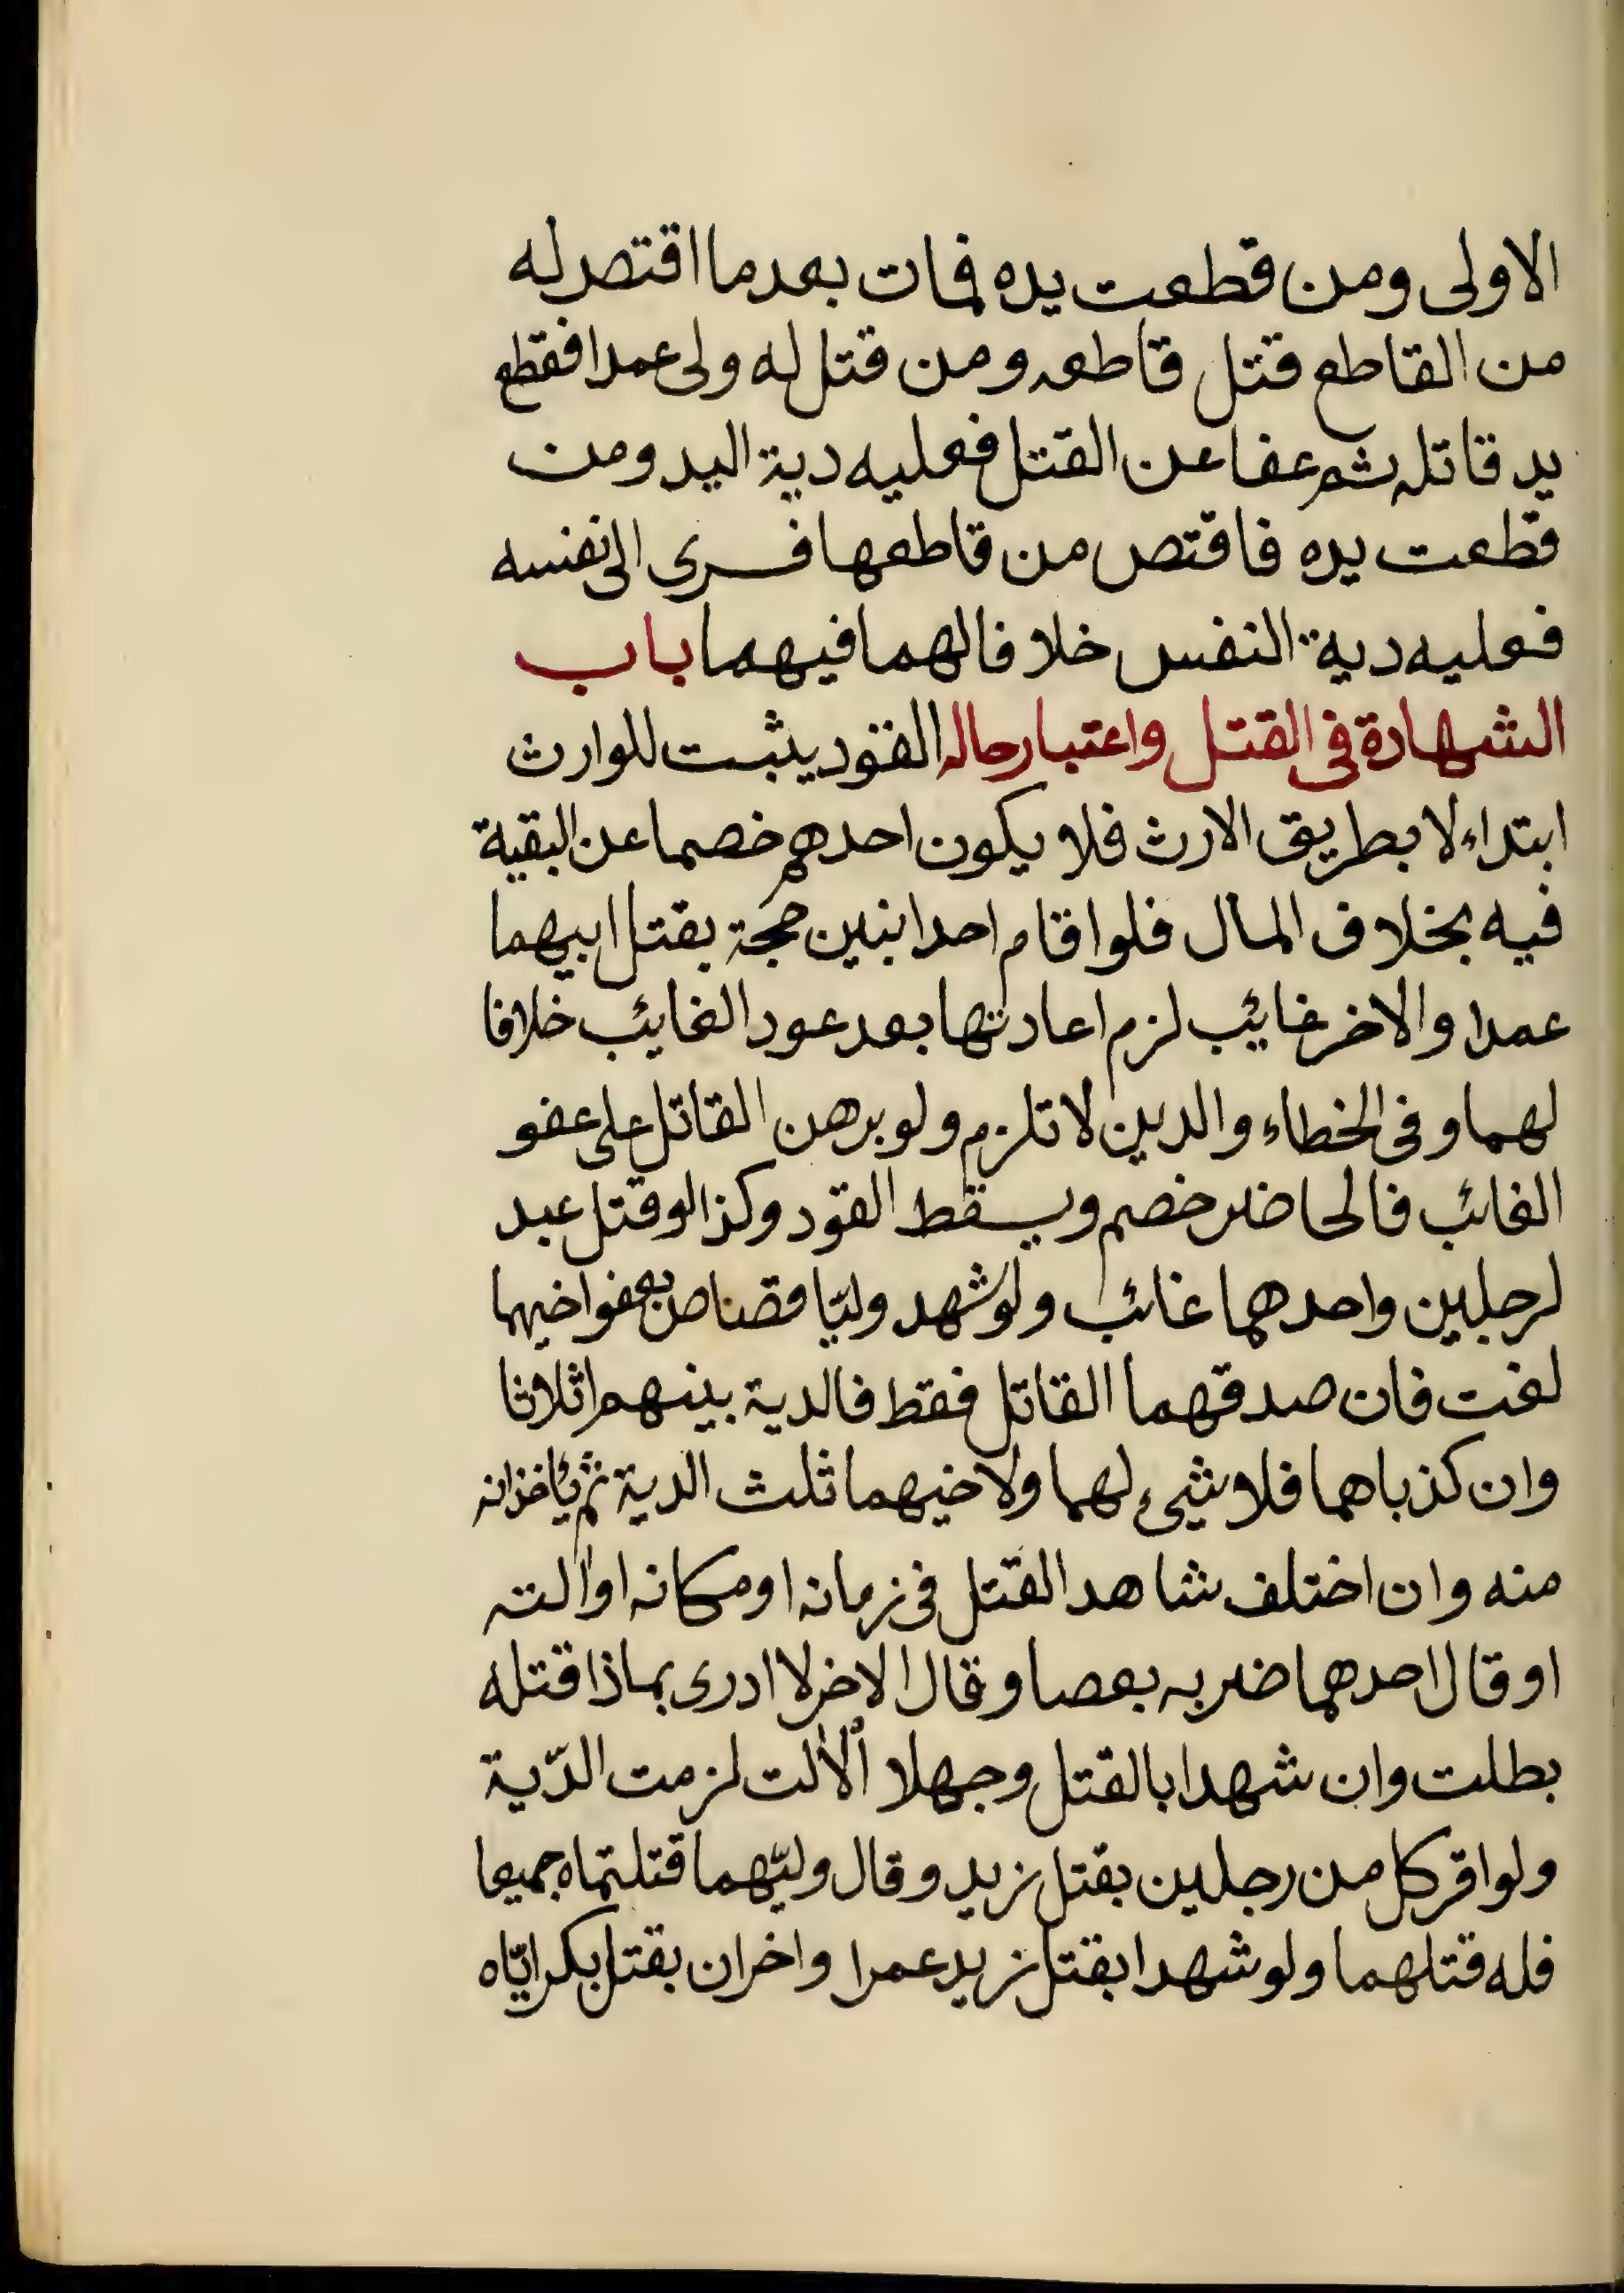 الاولى ومن قطعت يده فمات بعدما اقتص له
من القاطع قتل قاطعه ومن قتل له ولى عمدا فقطع
يد قاتله ثم عفا عن القتل فعليه دية اليد ومن
قطعت يده فاقتص من قاطعها فسرى الى نفسه
فعليه دية النفس خلافا لهما فيهما باب
الشهادة فى القتل واعتبار حاله القود يثبت للوارث
ابتداء لا بطريق الارث فلا يكون احدهم خصما عن البقية
فيه بخلاف المال فلو اقام احد ابنين حجة بقتل ابيهما
عمدا والاخر غائب لزم اعادتها بعد عود الغائب خلافا
لهما وفى الخطاء والدين لا تلزم ولو برهن القاتل على عفو
الغائب فالحاضر خصم ويسقط القود وكذا لو قتل عبد
لرجلين واحدهما غائب ولو شهد وليّا قصاص بعفو اخيهما
لغت فان صدقهما القاتل فقط فالدية بينهم اثلاثا
وان كذباهما فلا شىء لهما ولاخيهما ثلث الدية ثم يأخذانه
منه وان اختلف شاهد القتل فى زمانه او مكانه او الته
او قال احدهما ضربه بعصا وقال الاخر لا ادرى بماذا قتله
بطلت وان شهدا بالقتل وجهلا الألت لزمت الدّية
ولو اقر كل من رجلين بقتل زيد وقال وليّهما قتلتماه جميعا
فله قتلهما ولو شهدا بقتل زيد عمرا واخران بقتل بكر ايّاه